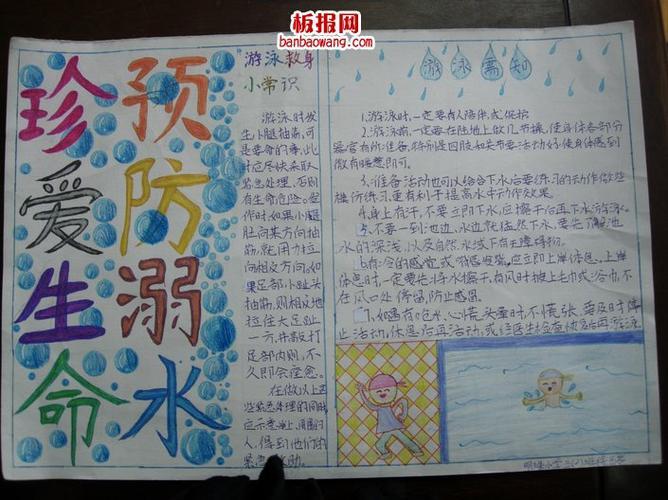 板报网
banbaowang.com
珍爱生命
预防溺水
游泳救身
小常识
游泳时发
生小腿抽筋,可
是要命的事,此
时应尽快采取
紧急处理,否则
有生命危险。
作时,如果小腿
肚向某方向抽
筋,就用力拉
向相反方向,如
果足部小趾头
抽筋,则相反地
拉住大足趾
一方,并敲打
足部内则,不
久即会痊愈。
在做以上
紧急处理的同时
应示意岸上,周围的
人,得到他们的
紧急助。
游泳需知
1.游泳时,一定要有人陪伴,或保护
2.游泳前,一定要在陆地上做几节操,使身体各部分
器官有所准备,特别是四肢如关节要活动好,使身体感到
微有睡意即可。
3.准备活动也可以结合下水后要练习的动作做些
模仿练习,更有利于提高水中动作效果。
4.身上有汗,不要立即下水,应擦干后再下水游泳。
5.不要一到池边,水边就猛然下水,要先了解池
水的深浅,以及自然水域下有无障碍物。
6.有冷的感觉,应立即上岸休息,上岸
休息时一定要先将水擦干,有风时披上毛巾或浴巾,不
在风口处停留,防止感冒
7.如遇有呛水,心慌,头晕时,不慌张,需及时停
止活动,休息后再活动,或经医生检查恢复后再游泳